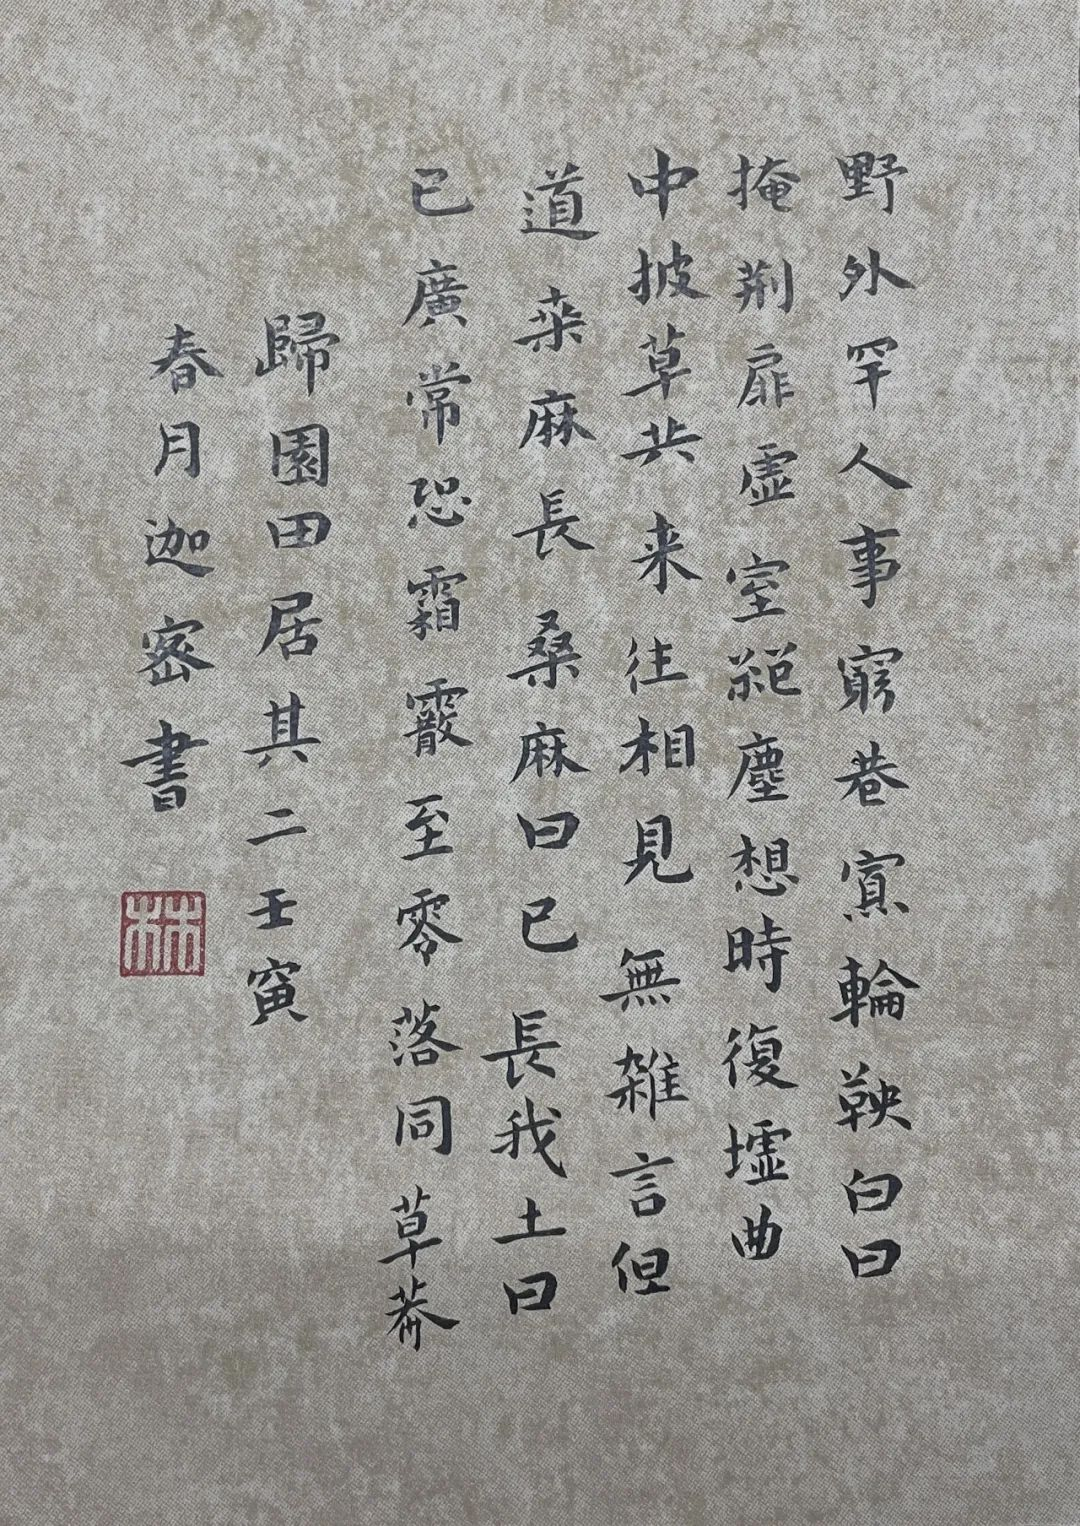 野外罕人事窮巷寡輪鞅白日
掩荆扉虚室絕塵想時復墟曲
中披草共来往相見無雑言但
道桒麻長桑麻日已長我土日
已廣常恐霜霰至零落同草莽
歸園田居其二壬寅
春月迦密書
林